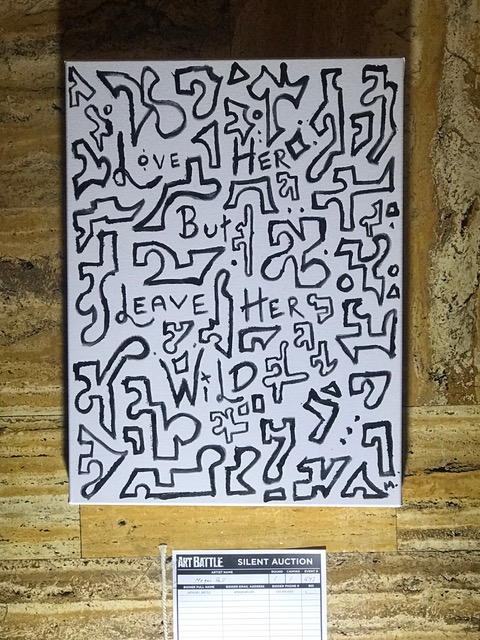 LOVE HER
BUT
LEAVE HER
WiLD
M.
ART BATTLE SILENT AUCTION
ARTIST NAME ROUND CANVAS EVENT #
BIDDER FULL NAME BIDDER EMAIL ADDRESS BIDDER PHONE # BID